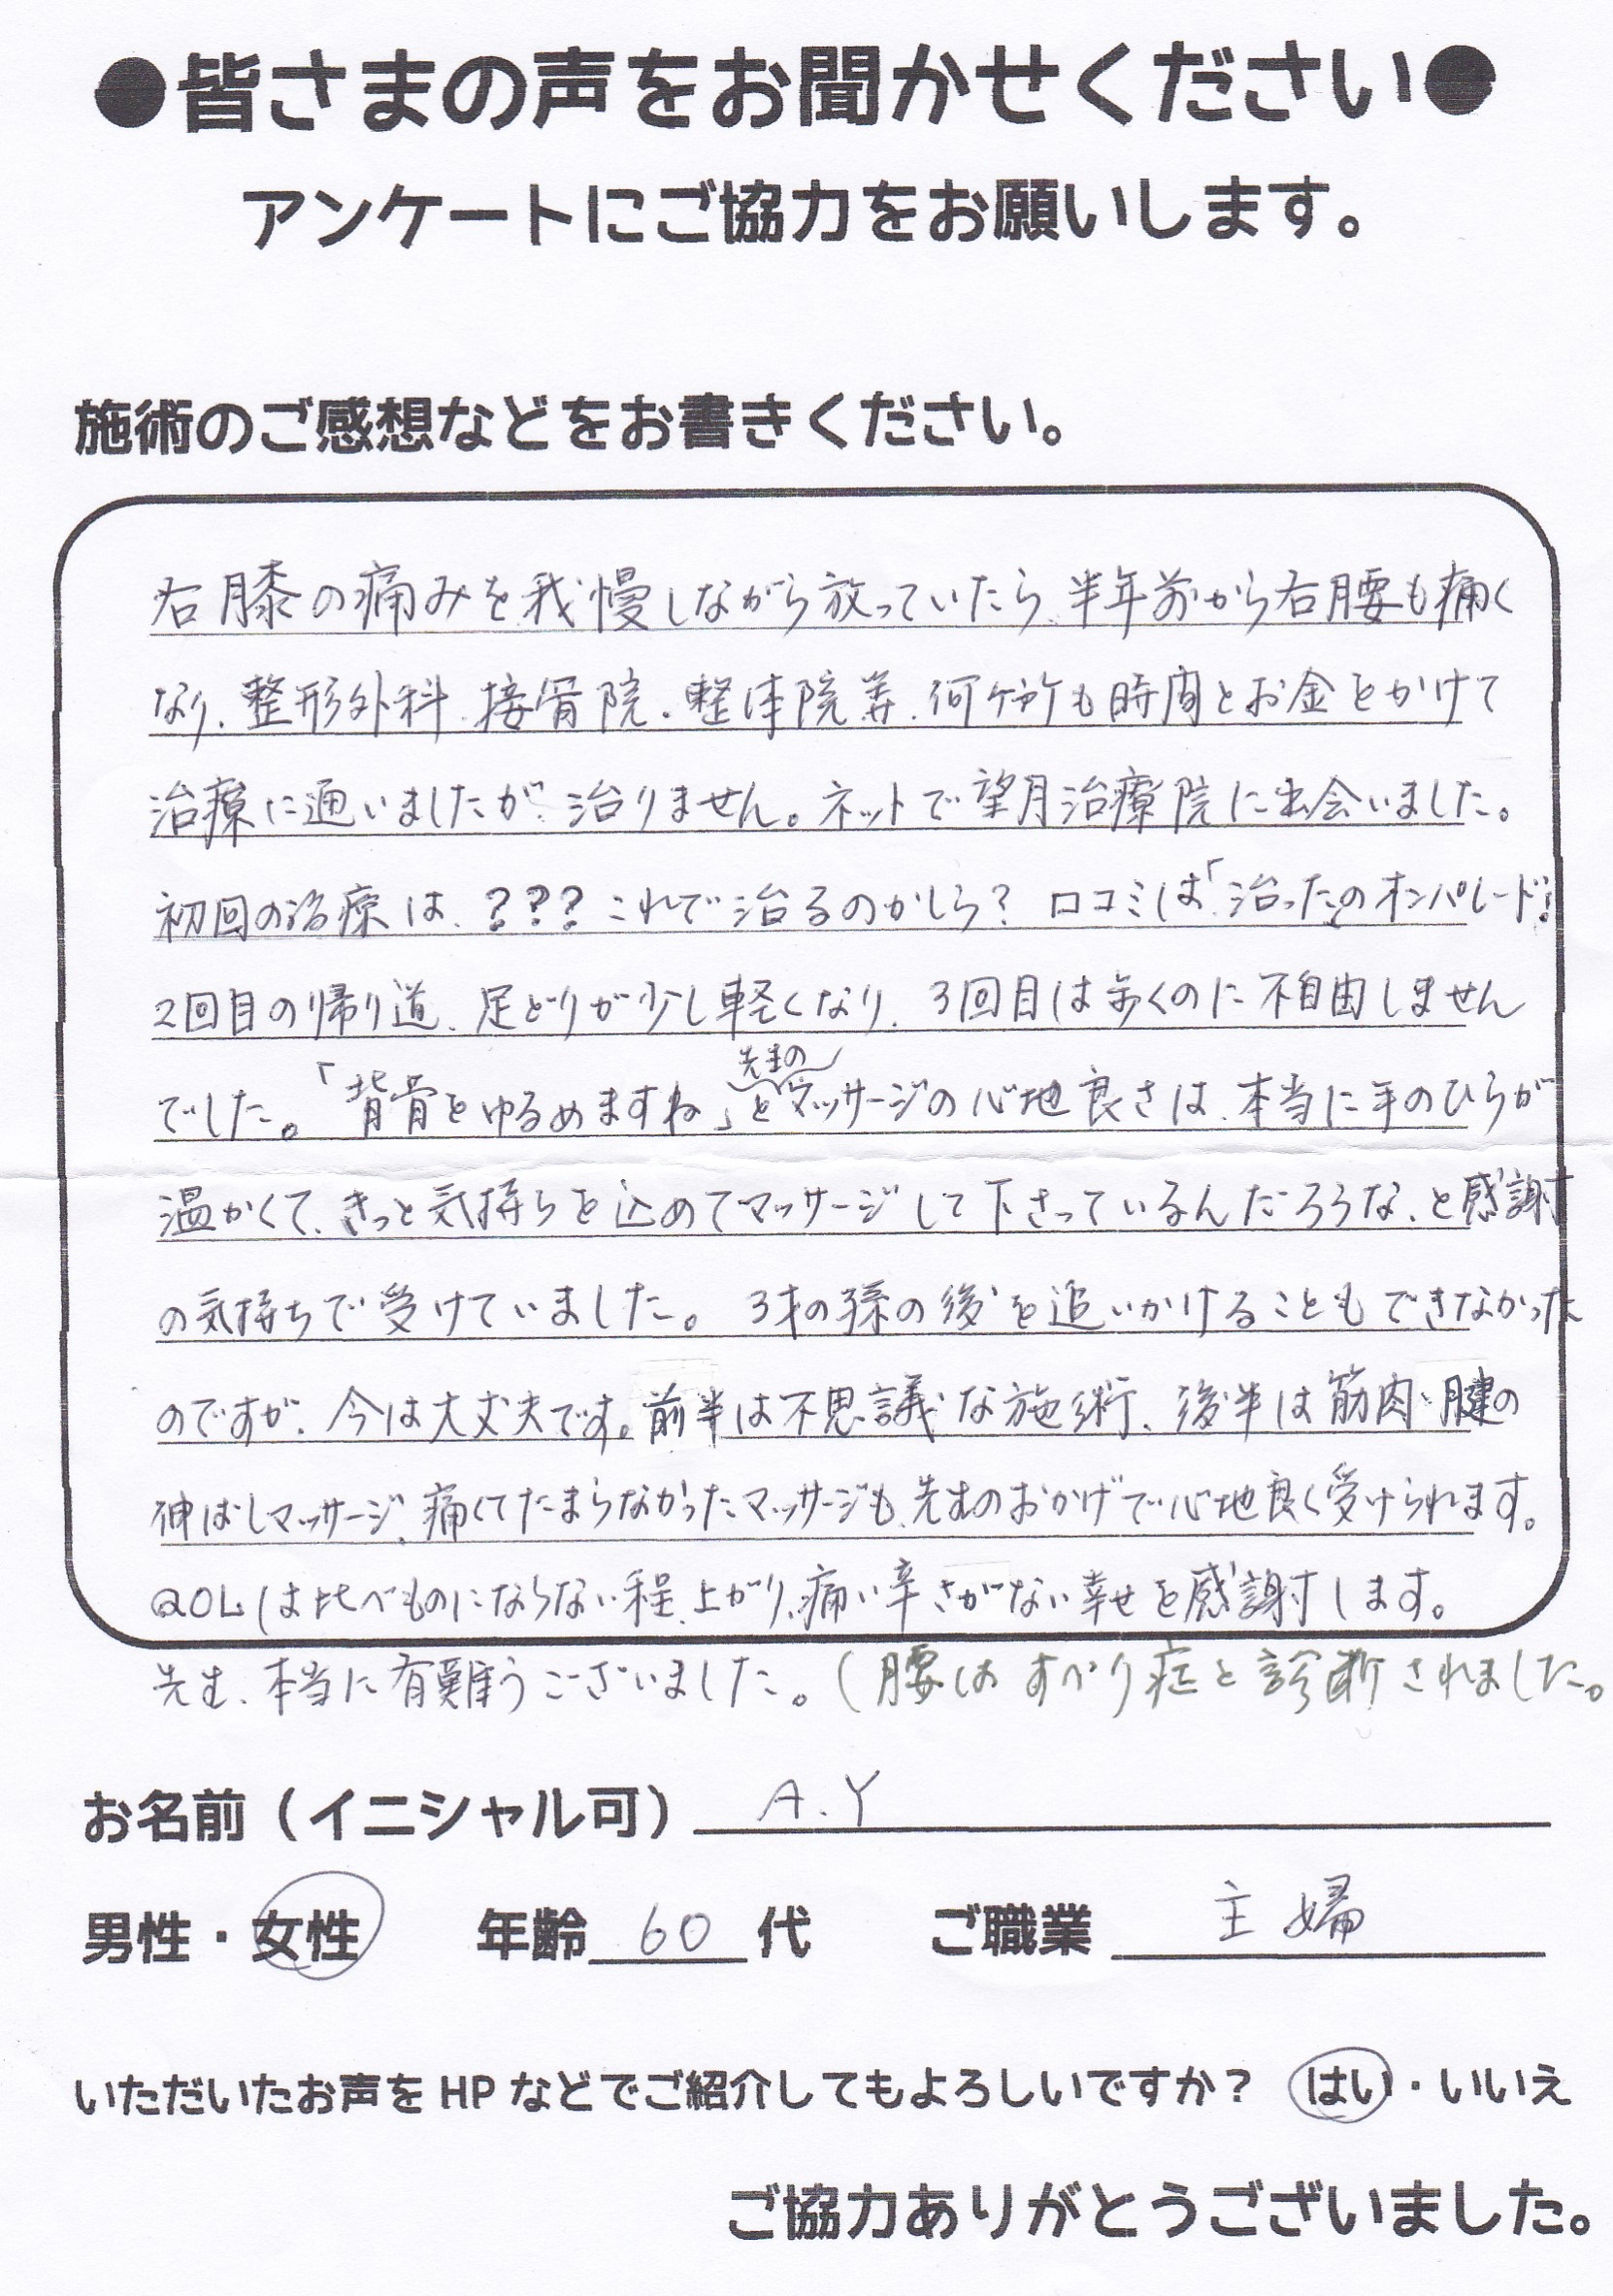 ●皆さまの声をお聞かせください●
アンケートにご協力をお願いします。
施術のご感想などをお書きください。
右膝の痛みを我慢しながら放っていたら、半年前から右腰も痛く
なり、整形外科、接骨院、整体院等、何ヶ所も時間とお金をかけて
治療に通いましたが、治りません。ネットで望月治療院に出会いました。
初回の治療は、???これで治るのかしら?口コミは「治った」のオンパレード!
2回目の帰り道、足どりが少し軽くなり、3回目は歩くのに不自由しません
でした。「背骨をゆるめますね」と先生のマッサージの心地良さは、本当に手のひらが
温かくて、きっと気持ちを込めてマッサージして下さっているんだろうな、と感謝
の気持ちで受けていました。3才の孫の後を追いかけることもできなかった
のですが、今は大丈夫です。前半は不思議な施術、後半は筋肉・腱の
伸ばしマッサージ、痛くてたまらなかったマッサージも、先生のおかげで心地良く受けられます。
QOLは比べものにならない程、上がり、痛い辛さがない幸せを感謝します。
先生、本当に有難うございました。(腰はすべり症と診断されました。
お名前(イニシャル可) A.Y
男性・女性 年齢 60 代 ご職業 主婦
いただいたお声をHPなどでご紹介してもよろしいですか? はい・いいえ
ご協力ありがとうございました。